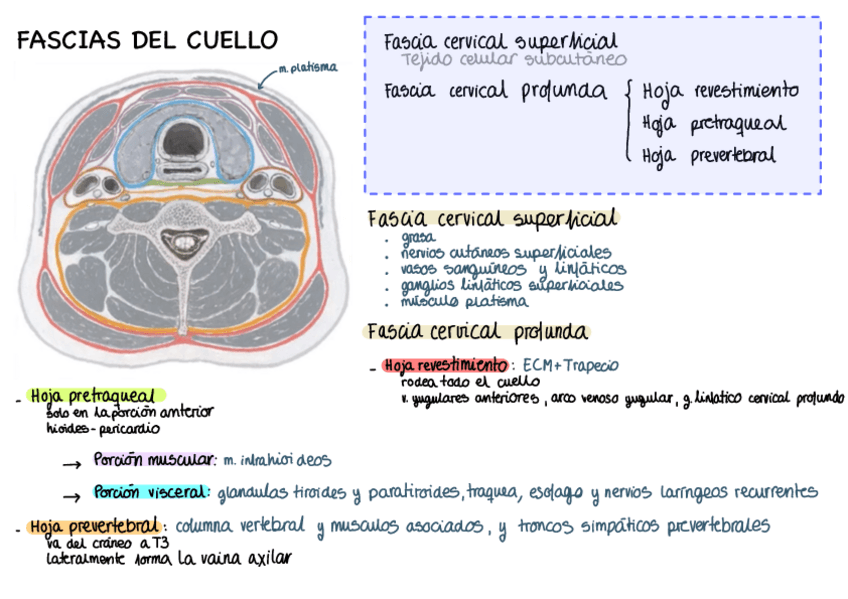 FASCIAS DEL CUELLO
m. platisma
Fascia cervical superficial
Tejido celular subcutáneo
Fascia cervical profunda
Hoja revestimiento
Hoja pretraqueal
Hoja prevertebral
Fascia cervical superficial
. grasa
. nervios cutáneos superficiales
. vasos sanguíneos y linfáticos
. ganglios linfáticos superficiales
. músculo platisma
Fascia cervical profunda
- Hoja revestimiento: ECM+Trapecio
rodea todo el cuello
v. yugulares anteriores, arco venoso yugular, g. linfatico cervical profundo
- Hoja pretraqueal
solo en la porción anterior
hioides - pericardio
→ Porción muscular: m. infrahioideos
→ Porción visceral: glandulas tiroides y paratiroides, traquea, esofago y nervios laríngeos recurrentes
- Hoja prevertebral: columna vertebral y musculos asociados, y troncos simpáticos prevertebrales
va del cráneo a T3
lateralmente forma la vaina axilar